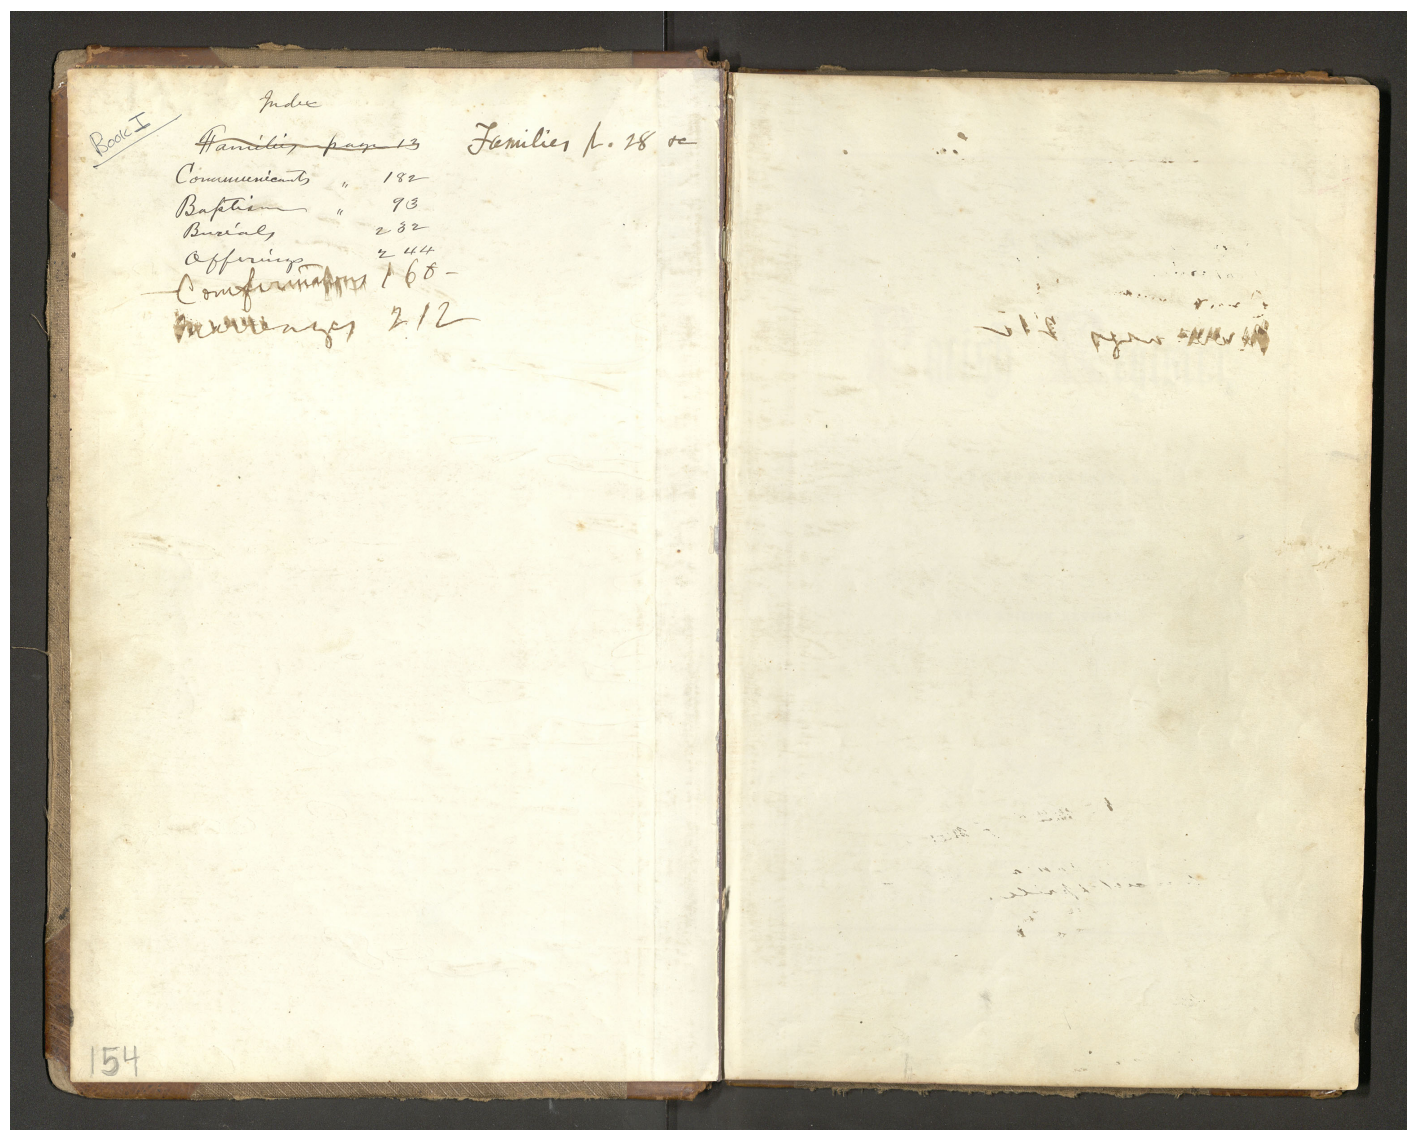 Index
Book I
Families page 13 Families p. 28 &c
Communicants " 182
Baptism " 93
Burials 232
Offerings 244
Confirmations 160-
Marriages 212
154